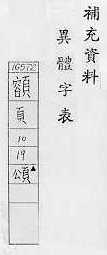 補充資料
異體字表
16572
額
頁
10
19
𩔜▲